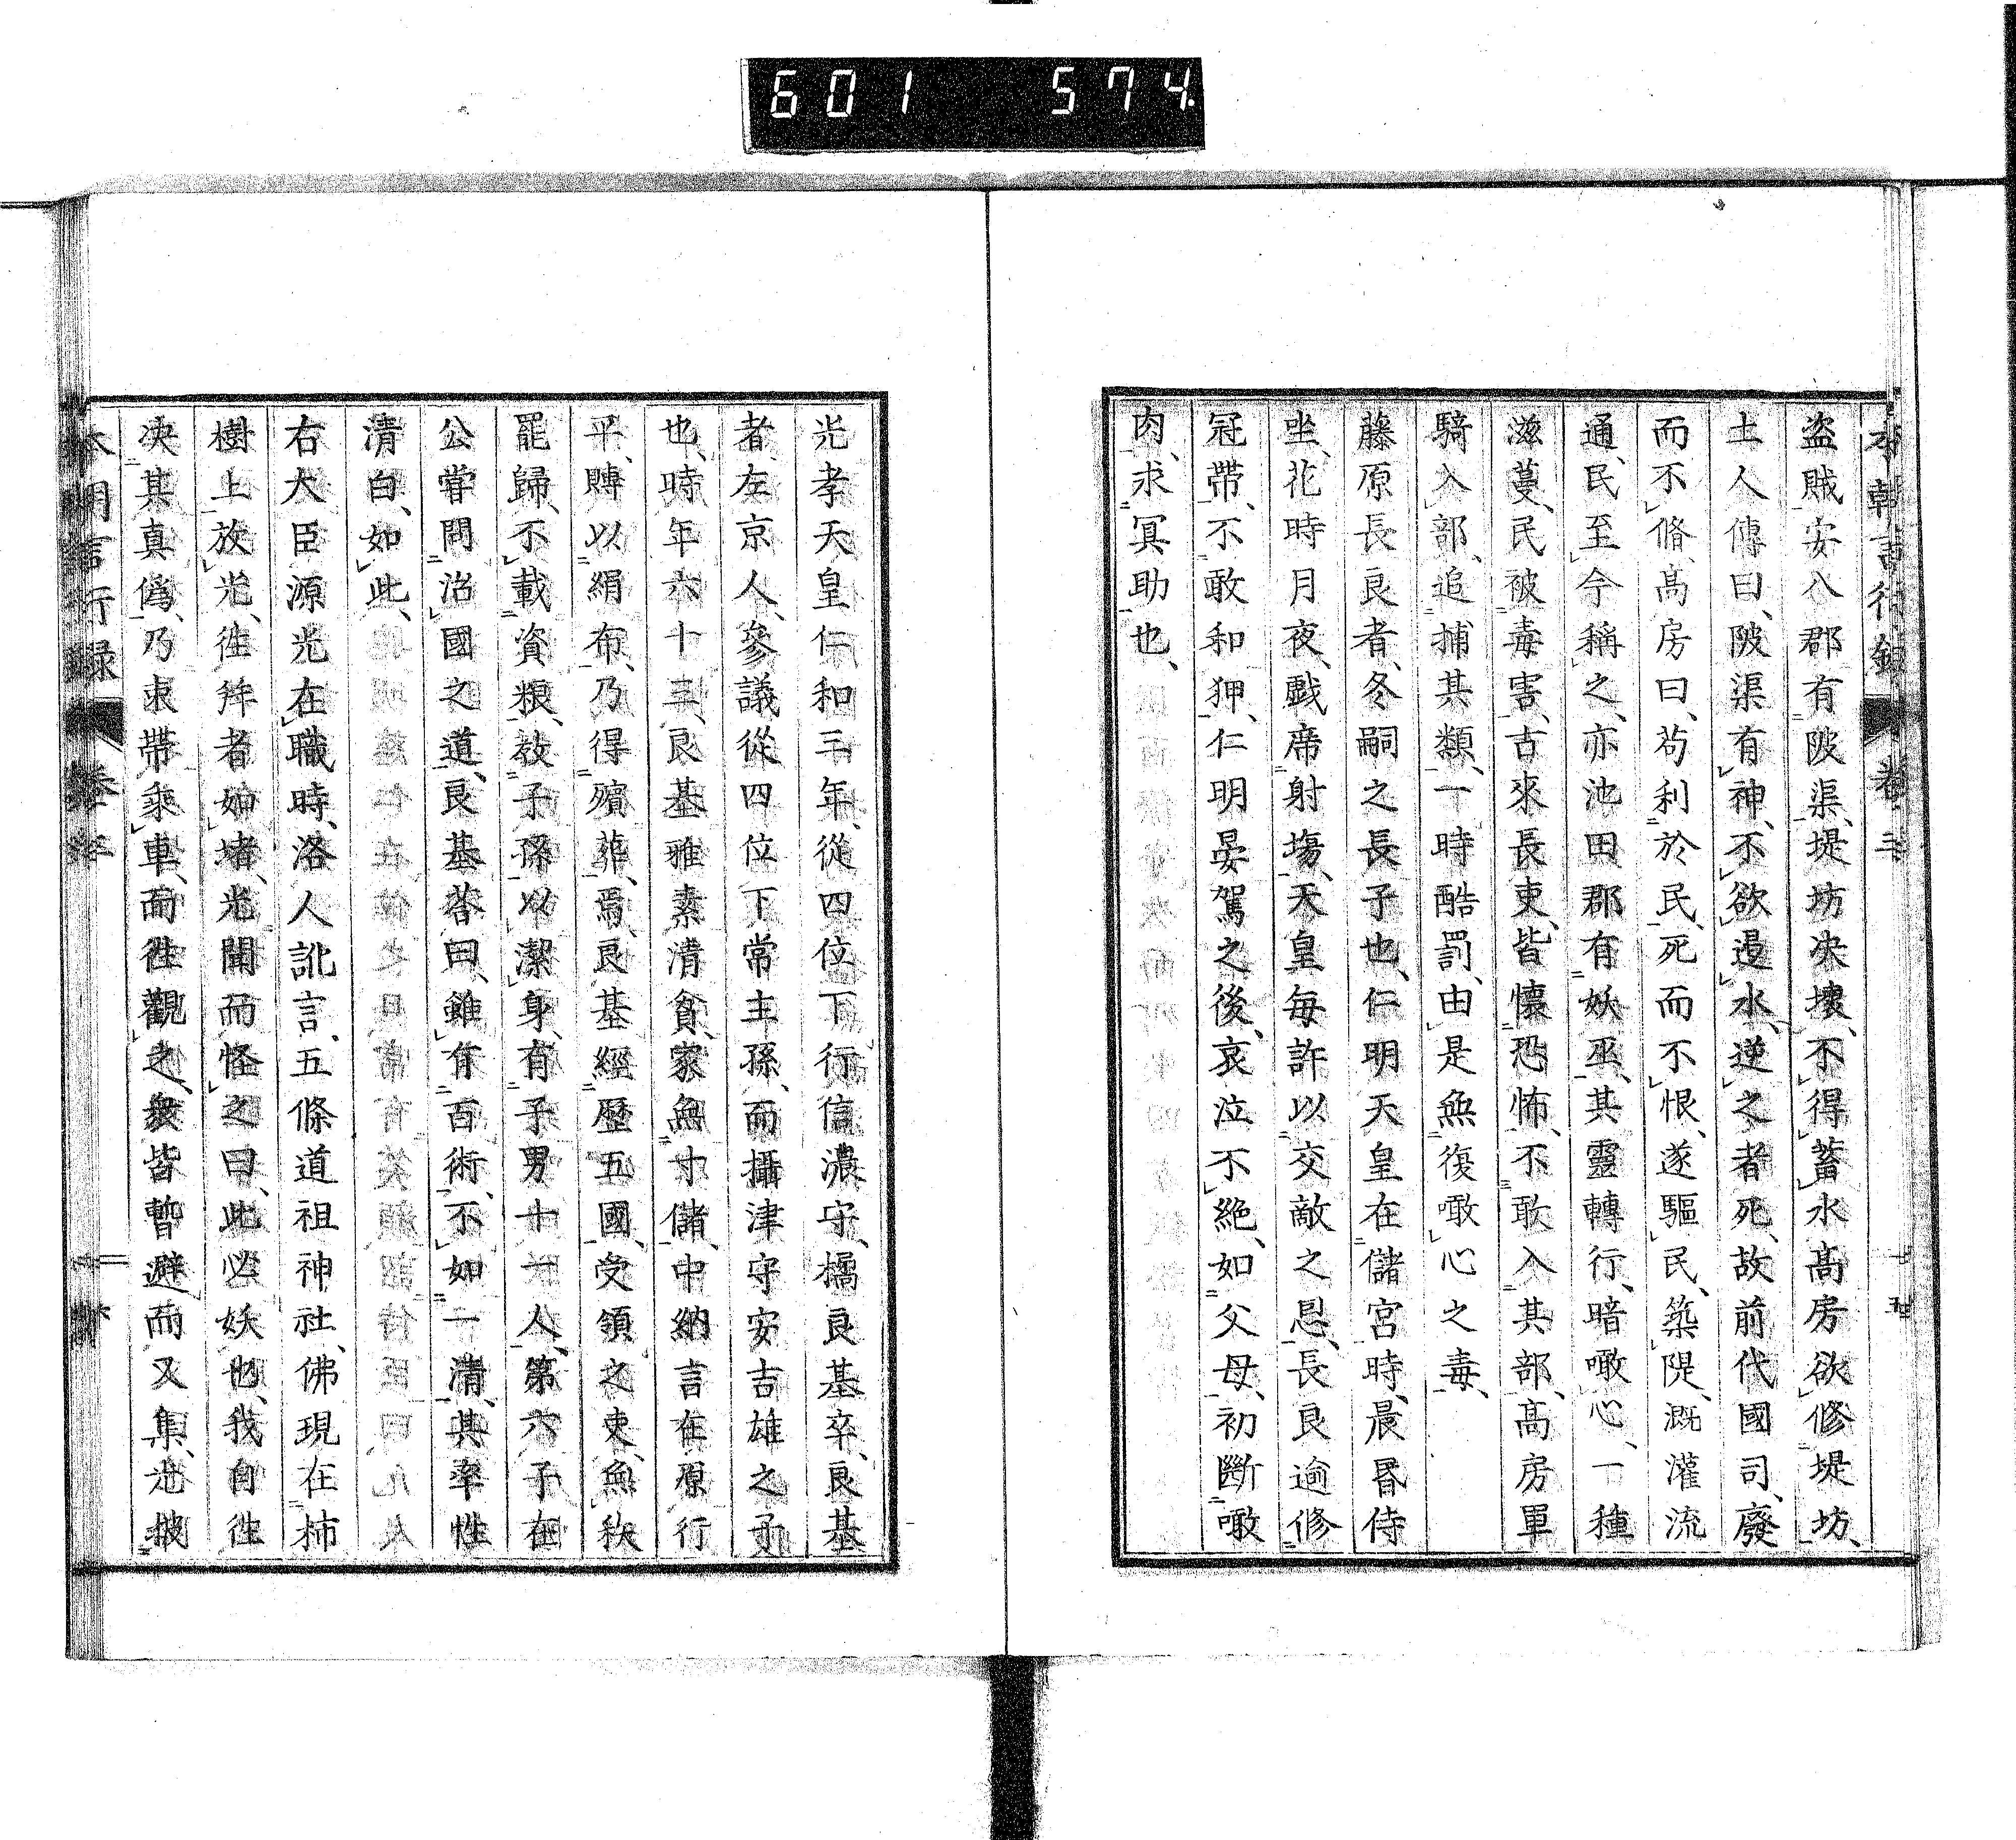 601 574.
本朝言行録 卷三
盗賊安八郡有陂渠、堤坊决壊、不得蓄水高房欲修堤坊、
土人傳曰、陂渠有神、不欲遏水、逆之者死、故前代國司、廢
而不脩、高房曰、苟利於民、死而不恨、遂驅民、築隄、漑灌流
通、民至今稱之、亦池田郡有妖巫、其靈轉行、暗噉心、一種
滋蔓、民被毒害、古來長吏、皆懷恐怖、不敢入其部、高房單
騎入部、追捕其類、一時酷罰、由是無復噉心之毒、
藤原長良者、冬嗣之長子也、仁明天皇在儲宮時、晨昏侍
坐、花時月夜、戯席射塲、天皇毎許以交敵之恩、長良逾修
冠帶、不敢和狎、仁明晏駕之後、哀泣不絶、如父母、初斷噉
肉、求冥助也、
光孝天皇仁和三年、從四位下行信濃守、橘良基卒、良基
者、左京人、參議從四位下常主孫、而攝津守安吉雄之子
也、時年六十三、良基雅素清貧、家無寸儲、中納言在原行
平、賻以絹布、乃得殯葬焉、良基經歷五國、受領之吏、無秩
罷歸、不載資粮、教子孫以潔身、有子男十一人、第六子在
公嘗問治國之道、良基荅曰、雖有百術、不如一清、其率性
清白、如此、
右大臣源光在職時、洛人訛言、五條道祖神社、佛現在柿
樹上放光、徃拜者如堵、光聞而怪之曰、此必妖也、我自徃
决其真僞、乃束帶乘車、而徃觀之、衆皆暫避而又集、光披
本朝言行録 卷三